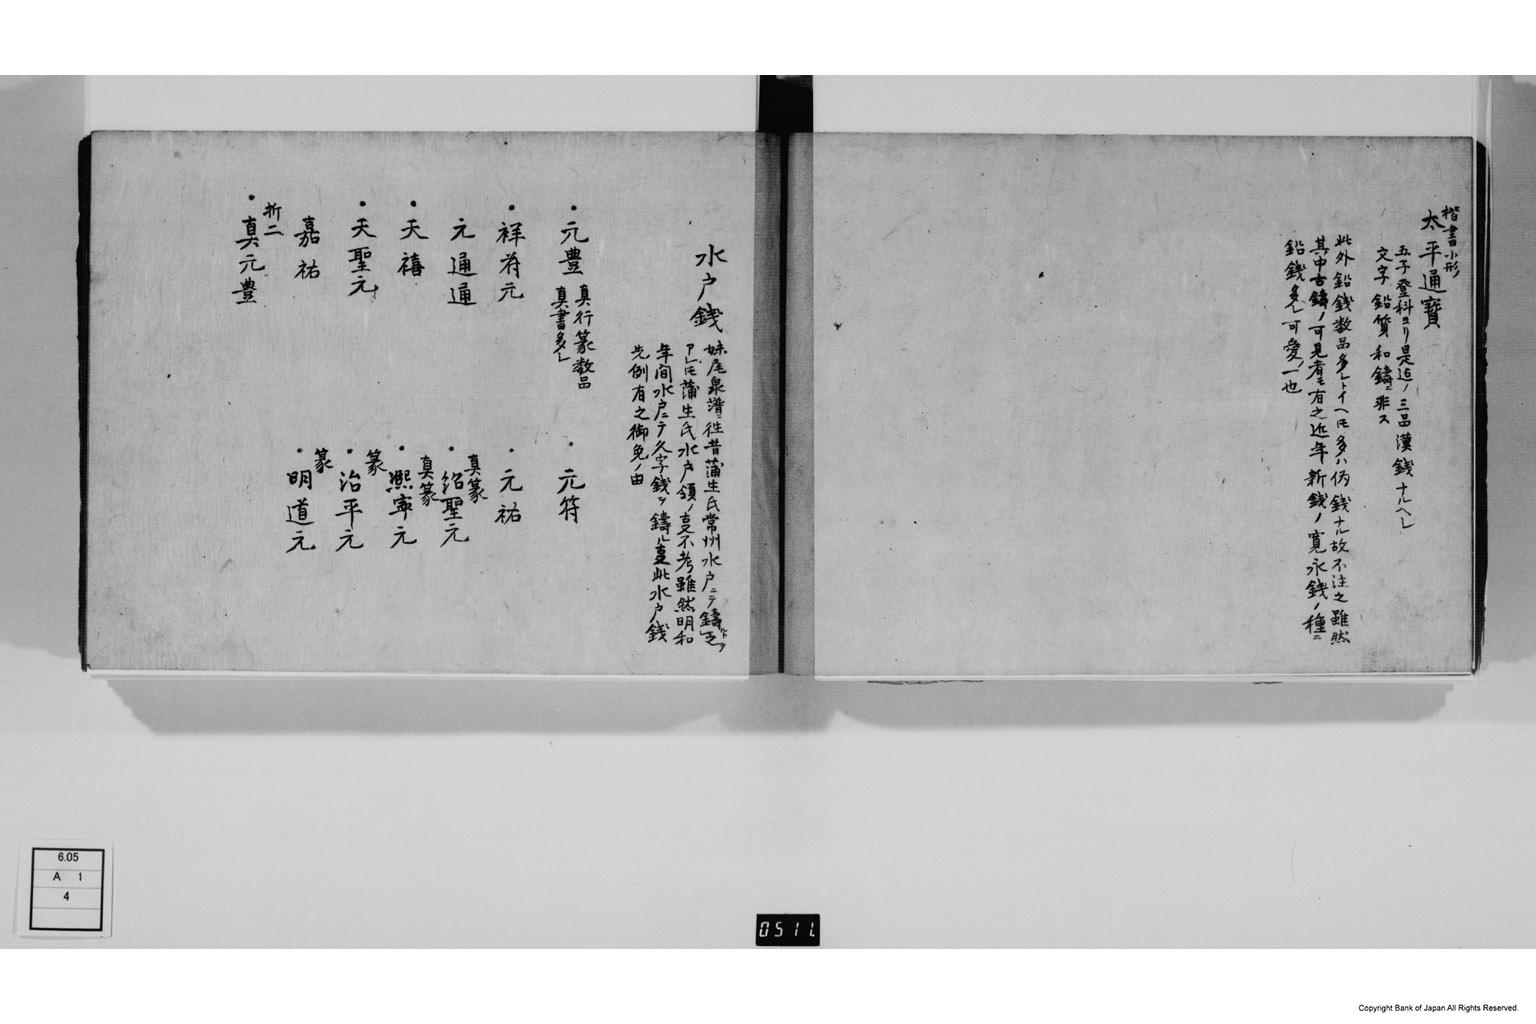 楷書小形
太平通寳
五子登科ヨリ是迠ノ三品漢銭ナルヘシ
文字鉛質和鑄ニ非ス
此外鉛銭数品多シトイヘ𪜈多ハ偽銭ナル故不注之雖然
其中古鑄ノ可見者モ有之近年新銭ノ寛永銭ノ種ニ
鉛銭多シ可愛ノ一也
水戸銭
妹尾泉譜ニ徃昔蒲生氏常州水戸ニテ鑄
アレ𪜈蒲生氏水戸領ノ叓不考雖然明和
年间水戸ニテ久字銭ヲ鑄ル叓此水戸銭
先例有之御免ノ由
・元豊
真行篆数品
真書多シ
・祥符元
元通通
・天禧
・天聖元
嘉祐
折二
・真元豊
・元符
・元祐
真篆
・紹聖元
真篆
・熙寧元
篆
・治平元
篆
・明道元
6.05
A 1
4
051
Copyright Bank of Japan All Rights Reserved.